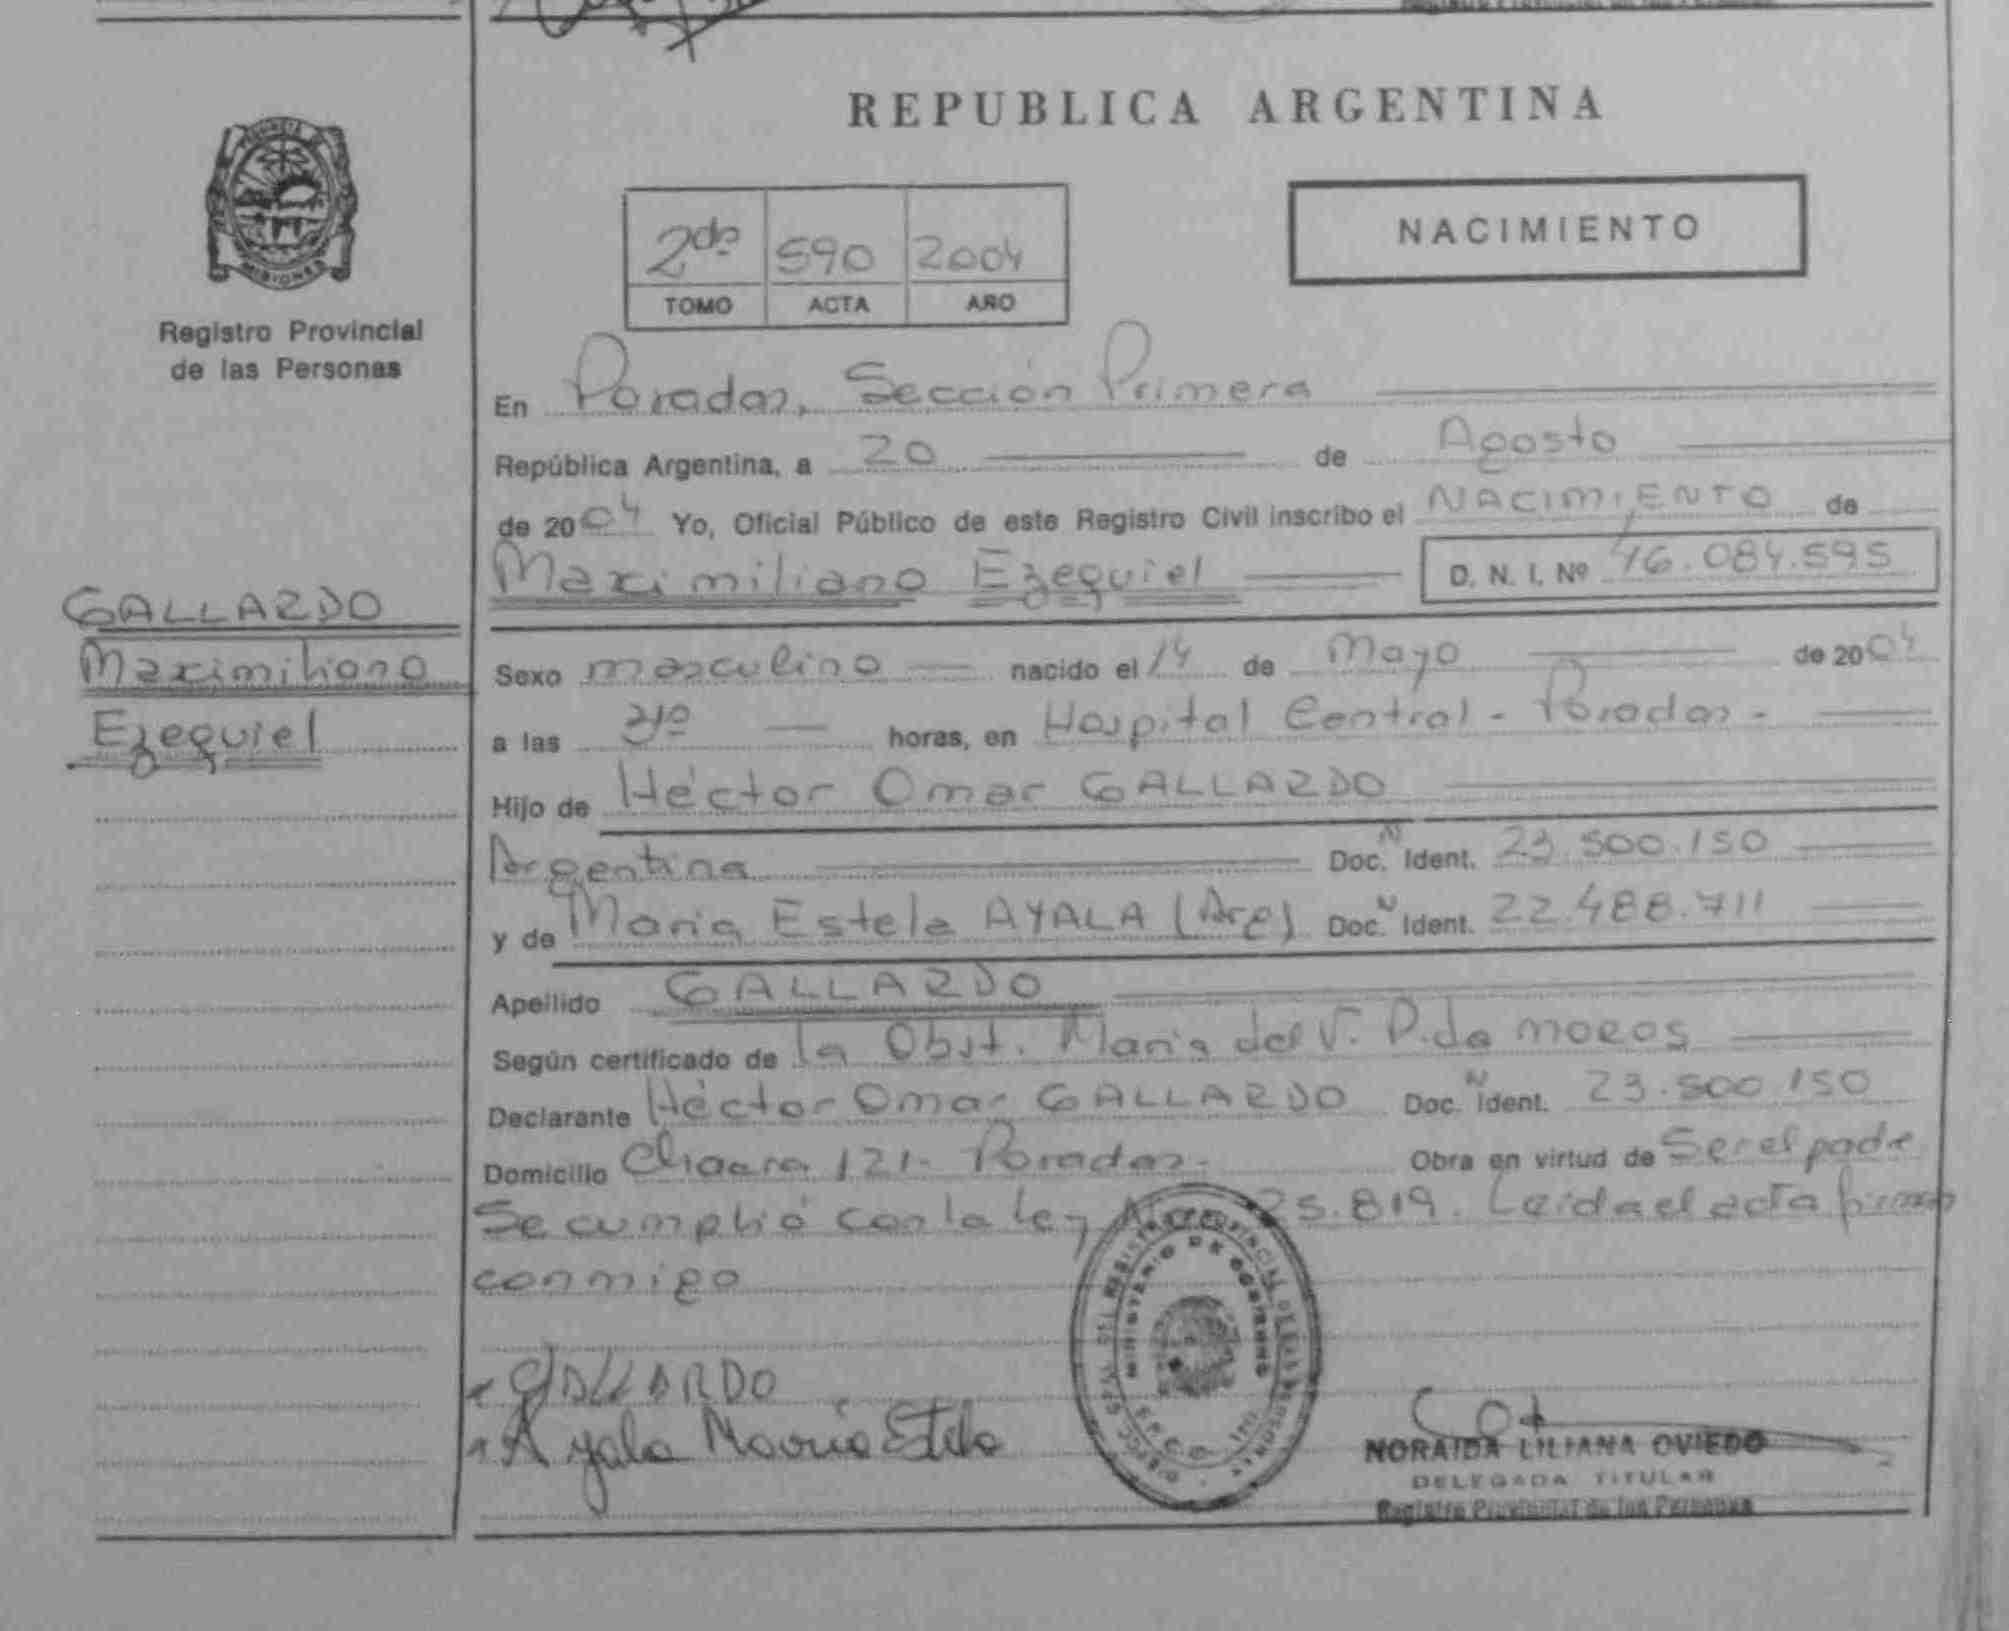 REPUBLICA ARGENTINA
NACIMIENTO
2do 590 2004
TOMO ACTA AÑO
MISIONES
Registro Provincial
de las Personas
En Posadas, Sección Primera
República Argentina, a 20 de Agosto
de 2004 Yo, Oficial Público de este Registro Civil inscribo el NACIMIENTO de
Maximiliano Ezequiel D. N. I. Nº 46.084.595
GALLARDO
Maximiliano
Ezequiel
Sexo masculino nacido el 14 de Mayo de 2004
a las horas, en Hospital Central - Posadas -
Hijo de Héctor Omar GALLARDO
Argentina Doc. N Ident. 23.500.150
y de Maria Estela AYALA (Arg) Doc. N Ident. 22.488.711
Apellido GALLARDO
Según certificado de la Obst. Maria del V. P. de
Declarante Héctor Omar GALLARDO Doc. N Ident. 23.500.150
Domicilio Chacra 121- Posadas- Obra en virtud de Ser el padre
Se cumplió con la ley 25.819. Leída el acta firman
conmigo
GALLARDO
Ayala Maria Estela
MINISTERIO DE GOBIERNO
NORAIDA LILIANA OVIEDO
DELEGADA TITULAR
Registro Provincial de las Personas